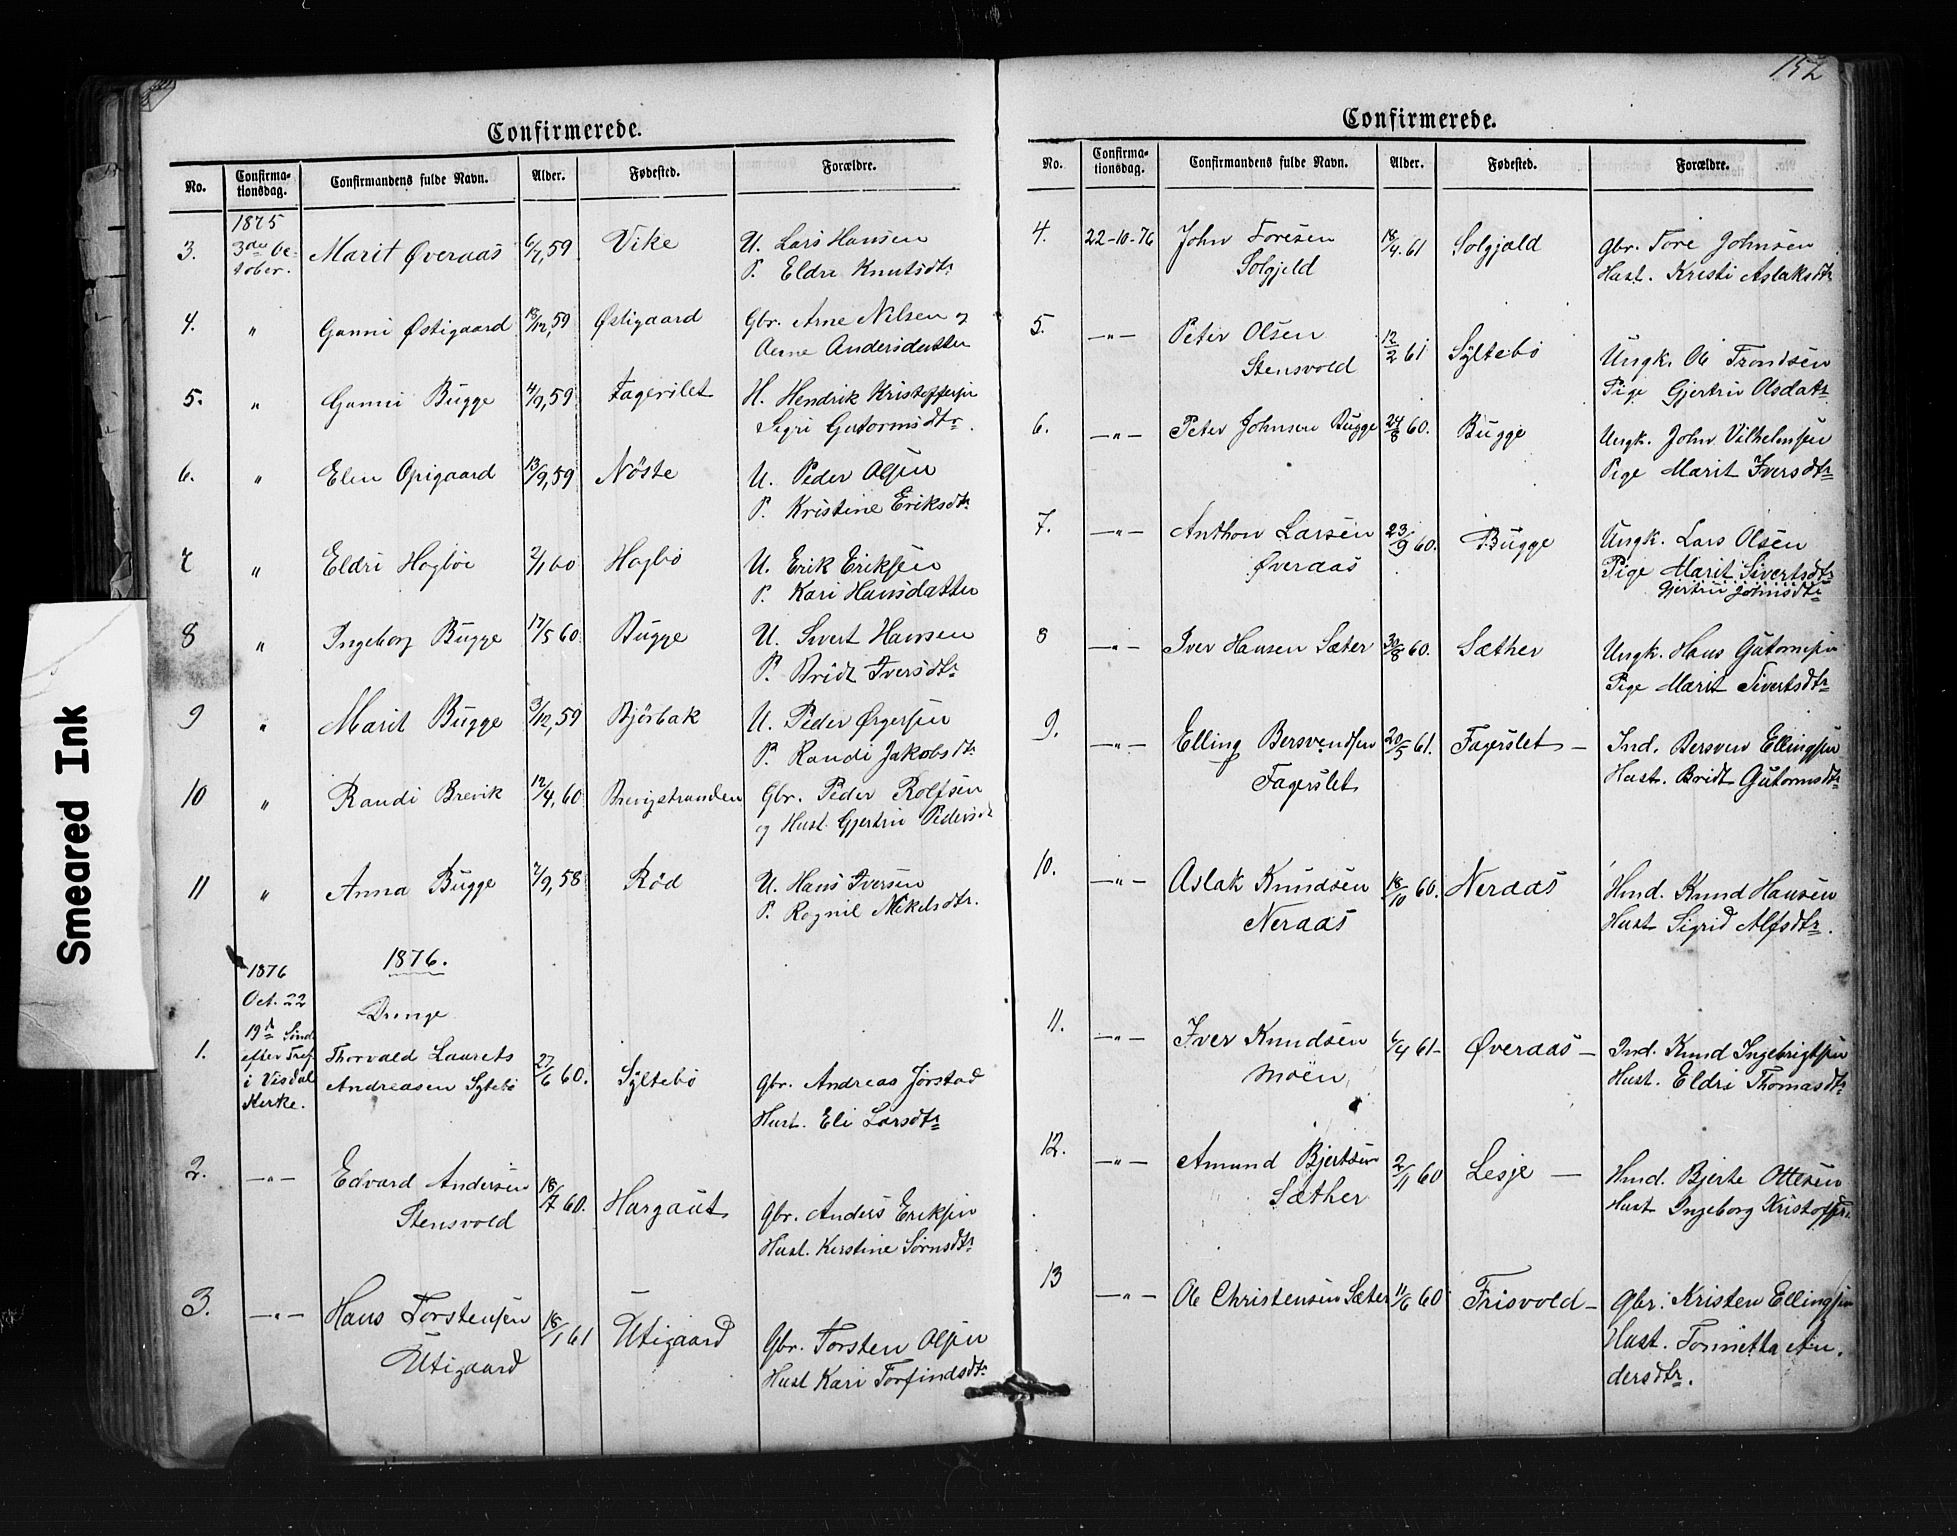 152
Smeared Ink
Confirmerede.
No.
Confirma-
tionsdag.
Confirmandens fulde Navn.
Alder.
Fødested.
Forældre.
1875
3. 3die Oc- Marit Øveraas 6/7, 59 Vike U. Lars Hansen
tober. P. Eldri Knutsdtr
4. " Gunni Østigaard 18/12, 59 Østigaard Gbr. Arne Nilsen og
Andersdatter
5. " Gunni Bugge 4/9, 59 Fagerslet H. Hendrik Kristoffersen
Sigri Gutormsdtr.
6. " Elen Opigaard 13/9, 59 Nöste U. Peder Olsen
P. Kristine Eriksdtr
7 " Eldri Hogböe 2/1 60 Hogbö U. Erik Eriksen
P. Kari Hansdatter
8 " Ingeborg Bugge 17/5 60. Bugge U. Sivert Hansen
P. Bridt Iversdtr
9 " Marit Bugge 3/12, 59 Bjórbak U. Peder Ørgersen
P. Randi Jakobsdtr.
10 " Randi Brevik 12/4, 60 Brevigstranden Gbr. Peder Rolfsen
og Hust. Gjertru Pedersd
11 " Anna Bugge 7/9, 58 Röd U. Hans Iversen
P. Ragnil Mikelsdtr.
1876 1876.
Oct. 22 Drenge
19d Sönd
1. efter Tref. Thorvald Laurets
i Visdal Andreasen Syltebö 27/6 60. Syltebö Gbr. Andreas Jörstad
Kerke. Hust. Eli Larsdtr
2. —"— Edvard Andersen 18/7 60. Hargaut Gbr. Anders Eriksen
Stensvold Hust. Kerstine Sörnsdtr
3. —"— Hans Torstensen 18/1 61 Utigaard Gbr. Torsten Olsen
Utigaard Hust Kari Torfindsdtr.
Confirmerede.
No.
Confirma-
tionsdag.
Confirmandens fulde Navn.
Alder.
Fødested.
Forældre.
4. 22-10-76 John Toresen 18/4. 61 Solgjeld Gbr. Tore Johnsen
Solgjeld Hust. Kristi Aslaksdtr
5. —"— Peter Olsen 12/2 61 Syltebö Ungk. Ole Trondsen
Stensvold Pige Gjertru Olsdatr
6. —"— Peter Johnsen Bugge 24/8 60. Bugge Ungk. John Vilhelmsen
Pige Marit Iversdtr
7. —"— Anthon Larsen 23/9 60. Bugge Ungk. Lars Olsen
Øveraas Pige Marit Sivertsdtr
Gjertru Johnsdtr
8 —"— Iver Hansen Sæter 30/8 60. Sæther Ungk. Hans Gutormsen
Pige Marit Sivertsdtr
9. —"— Elling Bersvendsen 20/5 61. Fagerslet — Ind. Bersven Ellingsen
Fagerslet Hust. Bridt Gutormsdtr
10. —"— Aslak Knudsen 18/10 60. Neraas Hmd. Knud Hansen
Neraas Hust Sigrid Alfsdtr.
11. —"— Iver Knudsen 6/4 61- Øveraas — Ind. Knud Ingebrigtsen
Moen Hust. Eldri Thomasdtr
12. —"— Amund Bjertsen 2/11 60 Lesje — Hmd. Bjerte Ottesen
Sæther Hust Ingeborg Kristoffer
13 —"— Ole Christensen Sæter 11/6 60 Frisvold — Gbr. Kristen Ellingsen
Hust. Tonnetta An-
dersdtr.